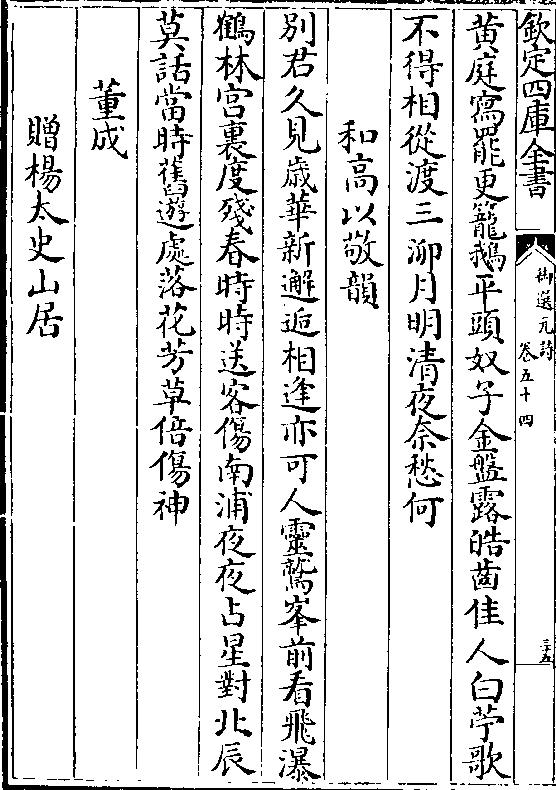 欽定四庫全書
御選元詩
卷五十四
三十五
黄庭寫罷更籠鵝平頭奴子金盤露皓齒佳人白苧歌
不得相從渡三泖月明清夜奈愁何
和高以敬韻
別君久見歳華新邂逅相逢亦可人靈鷲峯前看飛瀑
鶴林宫裏度殘春時時送客傷南浦夜夜占星對北辰
莫話當時舊遊處落花芳草倍傷神
董成
贈楊太史山居